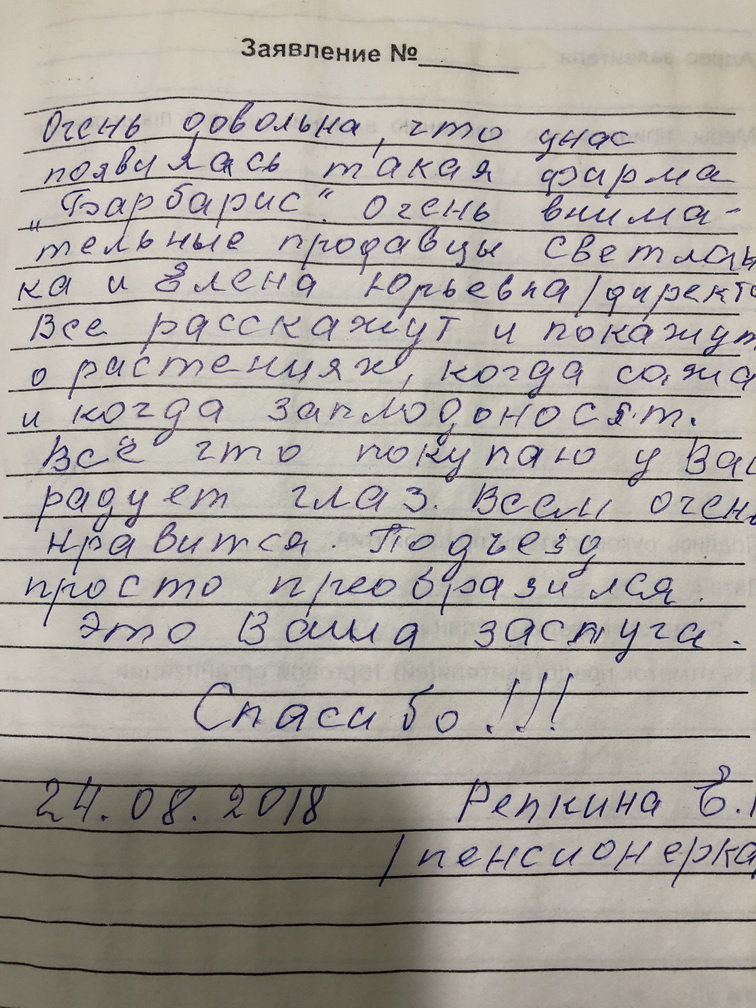 Заявление №
Очень довольна, что у нас
появилась такая фирма
„Барбарис“. Очень внима-
тельные продавцы Светлан
ка и Елена Юрьевна /директо
Все расскажут и покажут
о растениях, когда сажа
и когда заплодоносят.
Всё что покупаю у Вас
радует глаз. Всем очень
нравится. Подъезд
просто преобразился.
Это Ваша заслуга.
Спасибо!!!
24.08.2018 Репкина Е.
/пенсионерка